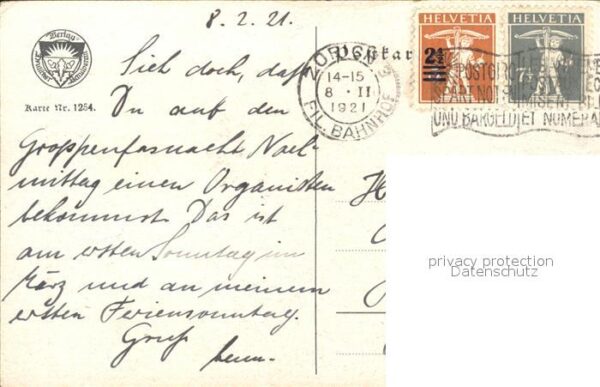 8. 2. 21.
Verlag
Karte Nr. 1254.
Sieh doch, dass
Du auf den
Groppenfasnacht Nach-
mittag einen Organisten
bekommst. Das ist
am ersten Sonntag im
März und an meinem
ersten Feriensonntag.
Gruss
HELVETIA
HELVETIA
2½
7½
ZÜRICH
14-15
8 · II
1921
FIL. BAHNHOF
SPART NOTEN
UND BARGELD
ET NUMERA
privacy protection
Datenschutz